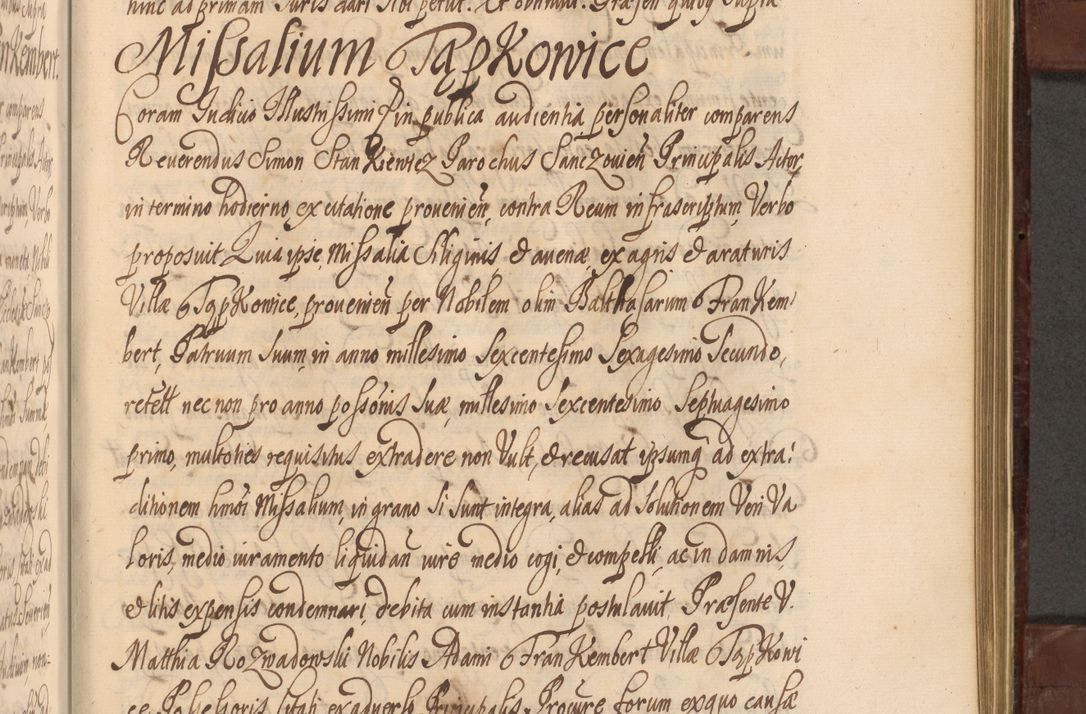 hinc ad primam Juris dari sibi petiit. Et obtinuit. Præsen quibus supra
Missalium Tąpkowice
Coram Judicio Illustrissimi in publica audientia personaliter comparens
Reuerendus Simon Stankiewicz Parochus Sanczouień Principalis Actor,
in termino hodierno, ex citatione prouenień, contra Reum infrascriptum, Verbo
proposuit, Quia ipse, Missalia Siliginis et auenæ, ex agris et araturis
Villæ Tąpkowice, prouenień per Nobilem olim Balthasarum Frankem
bert, Patruum suum, in anno millesimo Sexcentesimo Sexagesimo Secundo,
retētt nec non pro anno possōnis suæ, millesimo Sexcentesimo Septuagesimo
primo, multoties requisitus extradere non Vult, et recusat ipsumq ad extra
ditionem hmōi Missalium, in grano si sunt integra, alias ad solutionem Veri Va
loris, medio iuramento liquidań iure medio cogi, et compelli, ac in damnis,
et litis expensis condemnari, debita cum instantia postulauit, Præsente V.
Matthia Rozwadowski Nobilis Adami Frankembert Villæ Tąpkowi
ce Possessoris citati ex aduerso Principalis Procure forum ex quo causæ